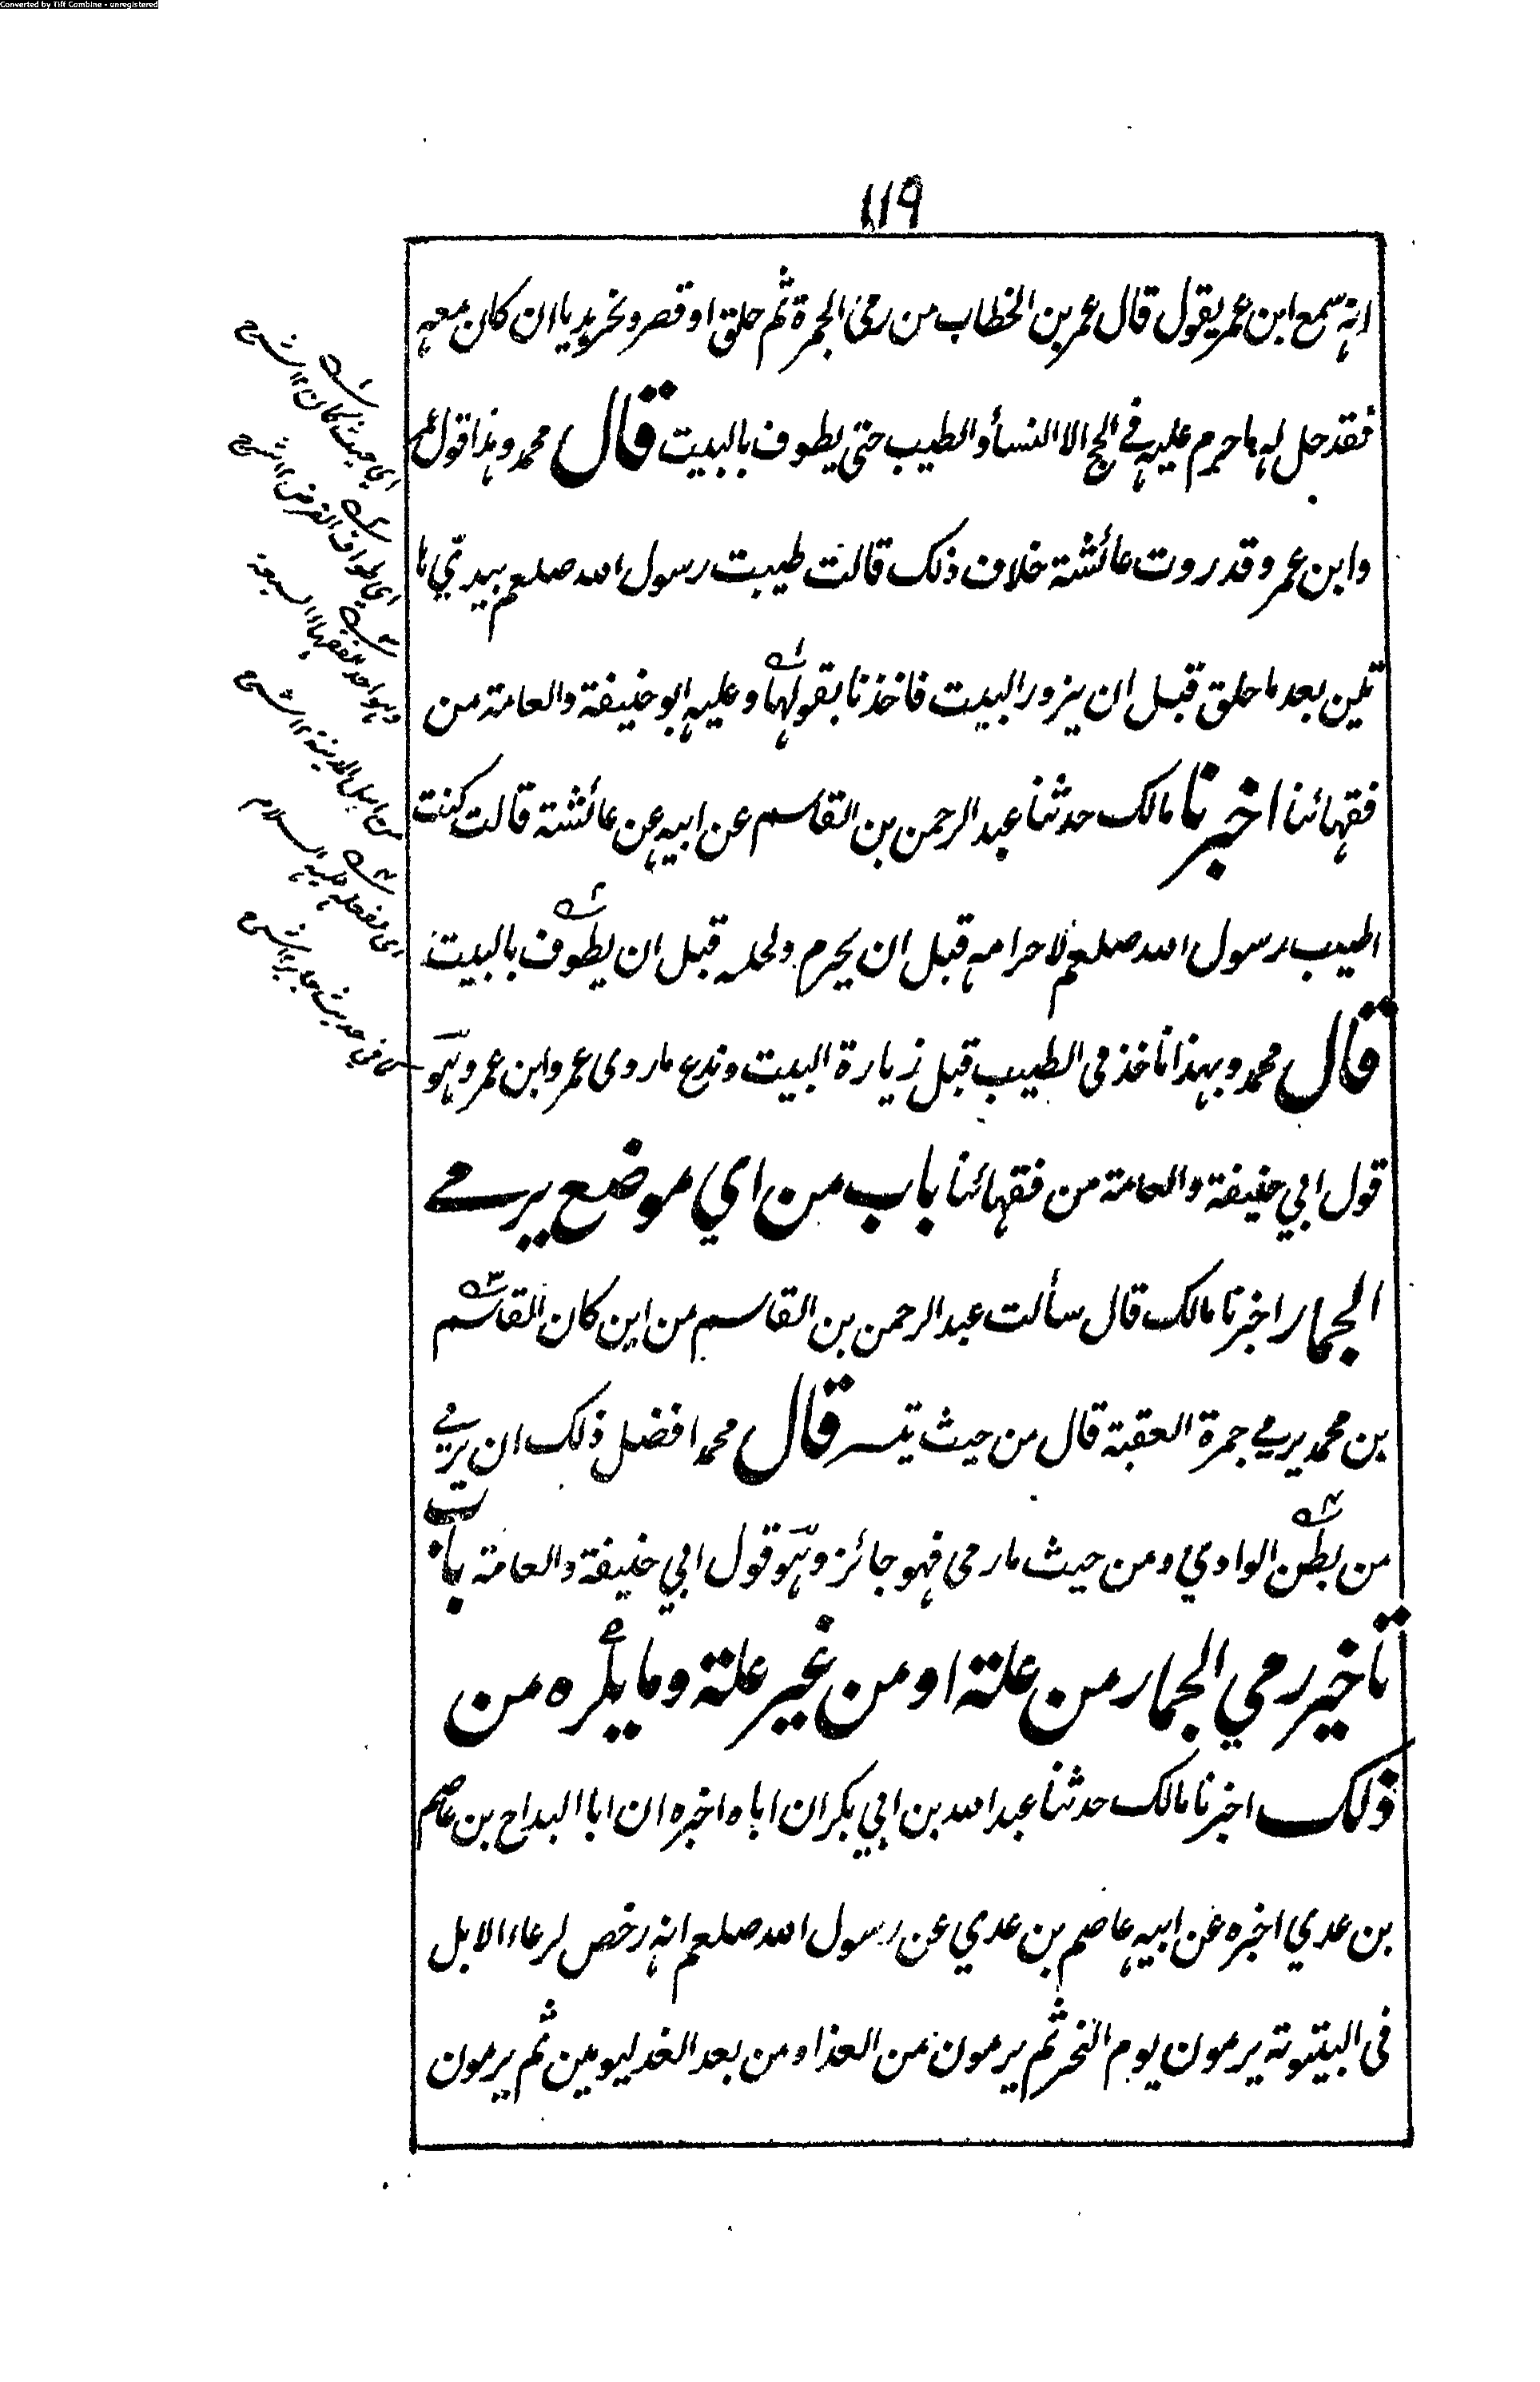 Converted by Tiff Combine - unregistered
١١٩
انه سمع ابن عمر يقول قال عمر بن الخطاب من رمى الجمرة ثم حلق او قصر ونحر هديا ان كان معه
فقد حل له ما حرم عليه في الحج الا النسأ والطيب حتى يطوف بالبيت قال محمد وهذا قول عمر
وابن عمر وقد روت عائشة خلاف ذلك قالت طيبت رسول الله صلعم بيديّ ها
تين بعد ما حلق قبل ان يزور البيت فاخذنا بقولها وعليه ابو حنيفة والعامة من
فقهائنا اخبرنا مالك حدثنا عبد الرحمن بن القاسم عن ابيه عن عائشة قالت كنت
اطيب رسول الله صلعم لاحرامه قبل ان يحرم ولحله قبل ان يطوف بالبيت
قال محمد وبهذا ناخذ فى الطيب قبل زيارة البيت وندع ما روى عمر وابن عمر وهو
قول ابي حنيفة والعامة من فقهائنا باب من اي موضع يرمي
الجمار اخبرنا مالك قال سألت عبد الرحمن بن القاسم من اين كان القاسم
بن محمد يرمي جمرة العقبة قال من حيث تيسر قال محمد افضل ذلك ان يرمي
من بطن الوادي ومن حيث ما رمى فهو جائز وهو قول ابي حنيفة والعامة باب
تاخير رمي الجمار من علة او من غير علة وما يكره من
ذلك اخبرنا مالك حدثنا عبد الله بن ابي بكر ان اباه اخبره ان ابا البداح بن عاصم
بن عدي اخبره عن ابيه عاصم بن عدي عن رسول الله صلعم انه رخص لرعاء الابل
فى البيتوتة يرمون يوم النحر ثم يرمون من الغد او من بعد الغد ليومين ثم يرمون
١
اي حيث كان ١٢ شرح
٢
اي طواف الفرض ١٢ شرح
٣
وهو احد الفقهاء السبعة
من اهل المدينة ١٢ شرح
٤
اى لفعله عليه السلام
في حديث جابر ١٢ شرح